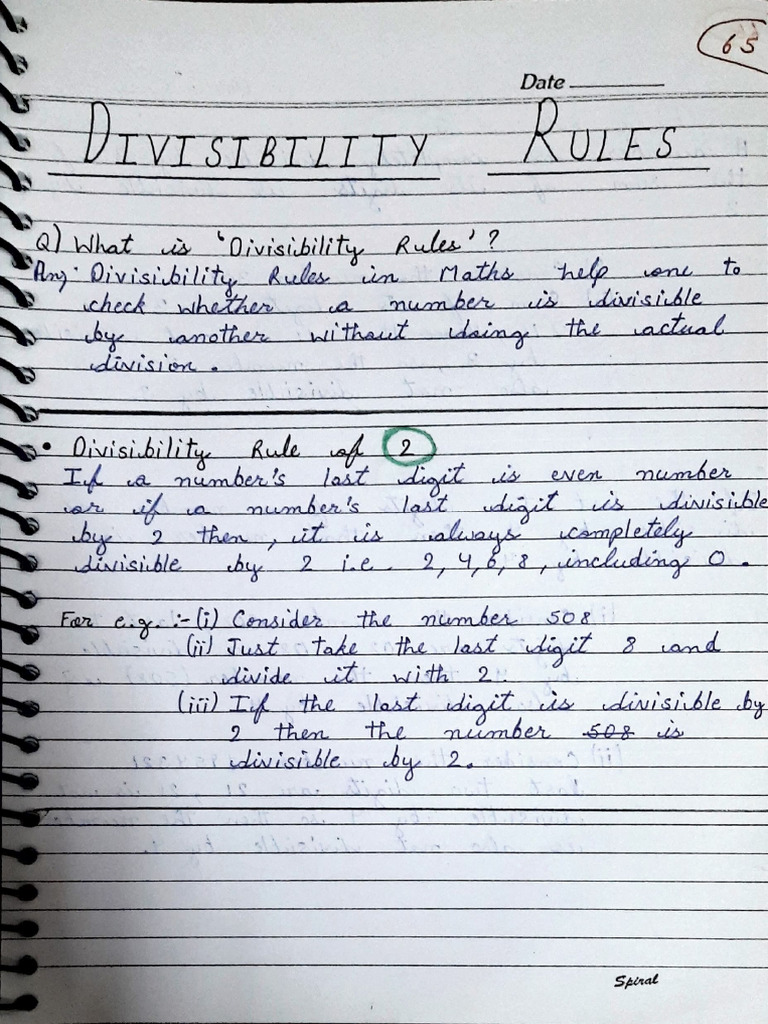 65
Date
DIVISIBILITY RULES
Q) What is 'Divisibility Rules'?
Ans: Divisibility Rules in Maths help one to
check whether a number is divisible
by another without doing the actual
division.
• Divisibility Rule of 2
If a number's last digit is even number
or if a number's last digit is divisible
by 2 then, it is always completely
divisible by 2 i.e. 2, 4, 6, 8, including 0.
For e.g. :- (i) Consider the number 508
(ii) Just take the last digit 8 and
divide it with 2.
(iii) If the last digit is divisible by
2 then the number 508 is
divisible by 2.
Spiral